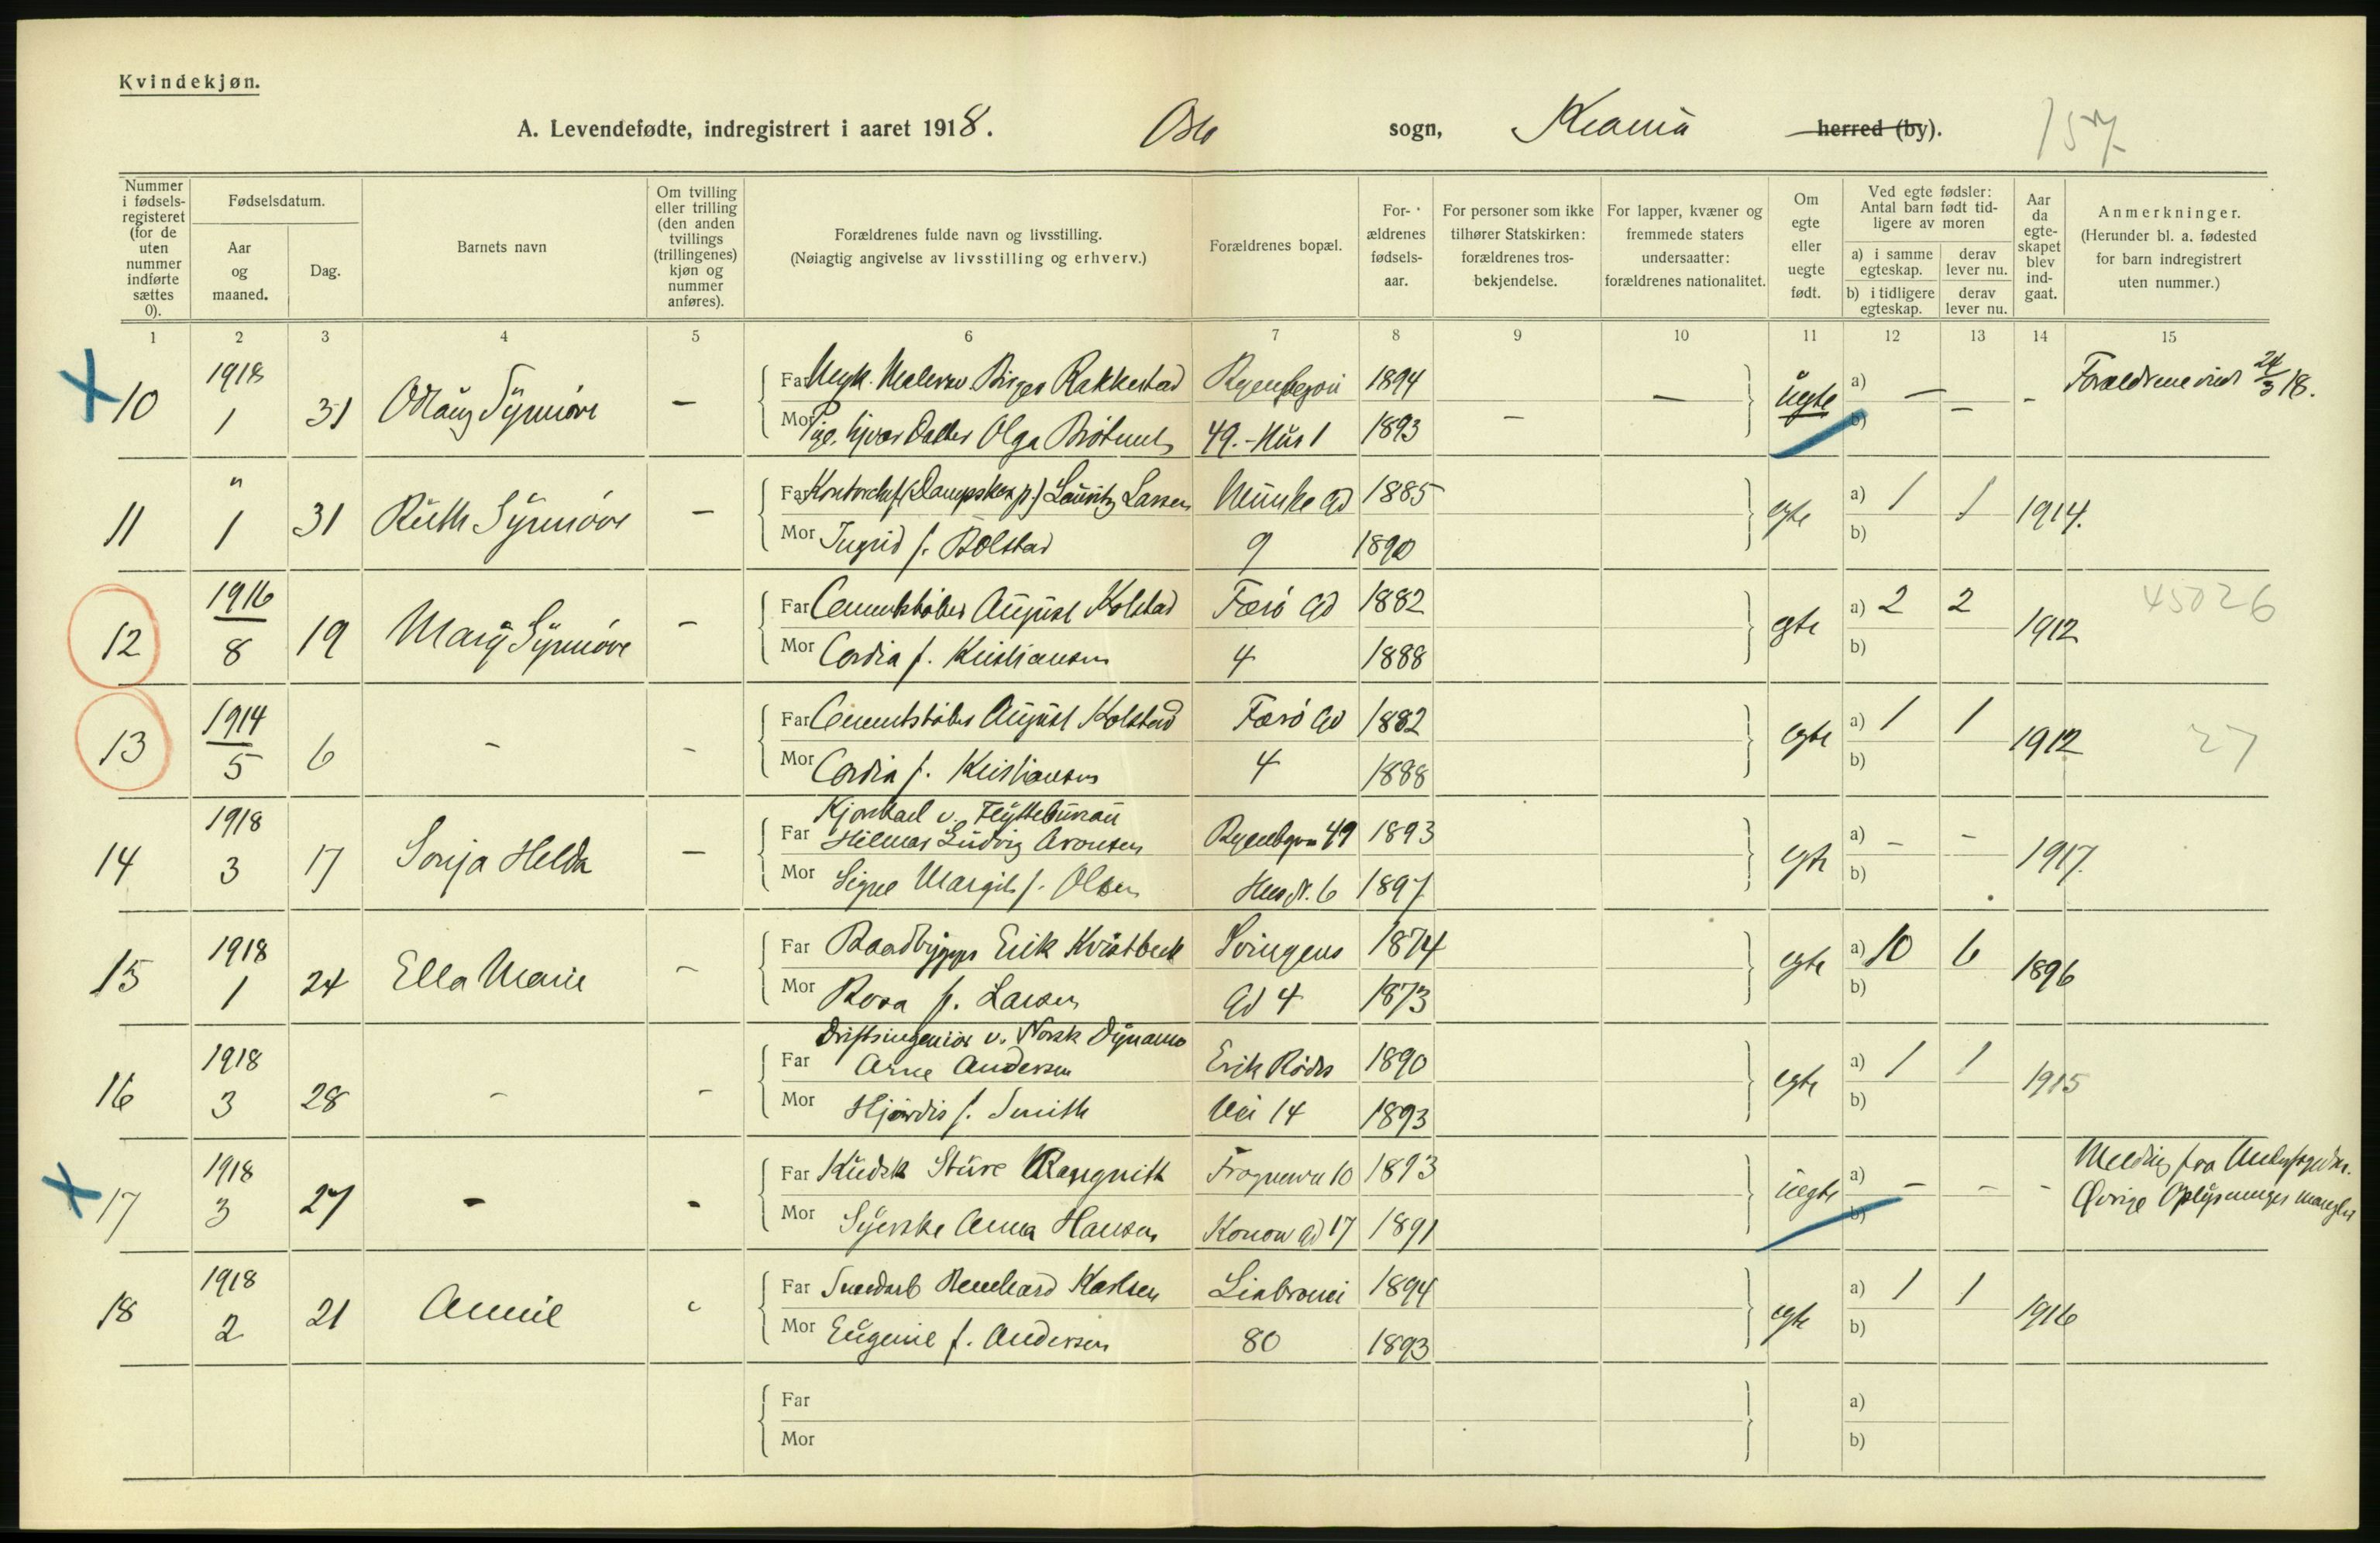 Kvindekjøn.
A. Levendefødte, indregistrert i aaret 1918. Oslo sogn, Kr.ania herred (by). 157
Nummer i fødsels-registeret (for de uten nummer indførte sættes 0).
Fødselsdatum.
Aar og maaned.
Dag.
Barnets navn
Om tvilling eller trilling (den anden tvillings (trillingenes) kjøn og nummer anføres).
Forældrenes fulde navn og livsstilling.
(Nøiagtig angivelse av livsstilling og erhverv.)
Forældrenes bopæl.
For-ældrenes fødsels-aar.
For personer som ikke tilhører Statskirken: forældrenes tros-bekjendelse.
For lapper, kvæner og fremmede staters undersaatter: forældrenes nationalitet.
Om egte eller uegte født.
Ved egte fødsler: Antal barn født tid-ligere av moren
a) i samme egteskap. derav lever nu.
b) i tidligere egteskap. derav lever nu.
Aar da egte-skapet blev ind-gaat.
Anmerkninger.
(Herunder bl. a. fødested for barn indregistrert uten nummer.)
1 2 3 4 5 6 7 8 9 10 11 12 13 14 15
1918 Far Birger Rakkestad 1894 a) — Forældrene viet 24/3 18.
10 1 31 Odlaug Synnøve — uegte — -
Mor Olga 49.-Hus 1 1893 — — b)
" Far Lauritz Larsen Munke Gd 1885 a) 1 1
11 1 31 Ruth Synnøve — egte 1914.
Mor Ingrid f. Bolstad 9 1890 b)
1916 Far Cementstøber August Kolstad Færø Gd 1882 a) 2 2 45026
12 8 19 Mary Synnøve — egte 1912
Mor Cordia f. Kristiansen 4 1888 b)
1914 Far Cementstøber August Kolstad Færø Gd 1882 a) 1 1
13 5 6 - - egte 1912 27
Mor Cordia f. Kristiansen 4 1888 b)
1918 Kjørekarl v. Flyttebureau
Far Hilmar Ludvig Aronsen 49 1893 a) - -
14 3 17 Sonja Helda — egte 1917
Mor Signe Margit f. Olsen Hus N. 6 1897 b)
1918 Far Baadbygger Erik Kvistbæk Svingens 1874 a) 10 6
15 1 24 Ella Marie - egte 1896
Mor Rosa f. Larsen Gd 4 1873 b)
Driftsingeniør v. Norsk Dynamo
1918 Far Arne Andersen Erik Røders 1890 a) 1 1
16 3 28 - - egte 1915
Mor Hjørdis f. Smith Vei 14 1893 b)
1918 Far Kudsk Sture 10 1893 a) - - - Melding fra
17 3 27 - - uegte Øvrige Oplysninger mangler
Mor Syerske Anna Hansen Konow Gd 17 1891 b)
1918 Far Karlsen Liabrovei 1894 a) 1 1
18 2 21 Annie egte 1916
Mor Eugenie f. Andersen 80 1893 b)
Far a)
Mor b)